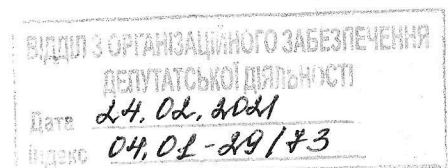 ВІДДІЛ З ОРГАНІЗАЦІЙНОГО ЗАБЕЗПЕЧЕННЯ
ДЕПУТАТСЬКОЇ ДІЯЛЬНОСТІ
Дата 24.02.2021
Індекс 04.01-29/73